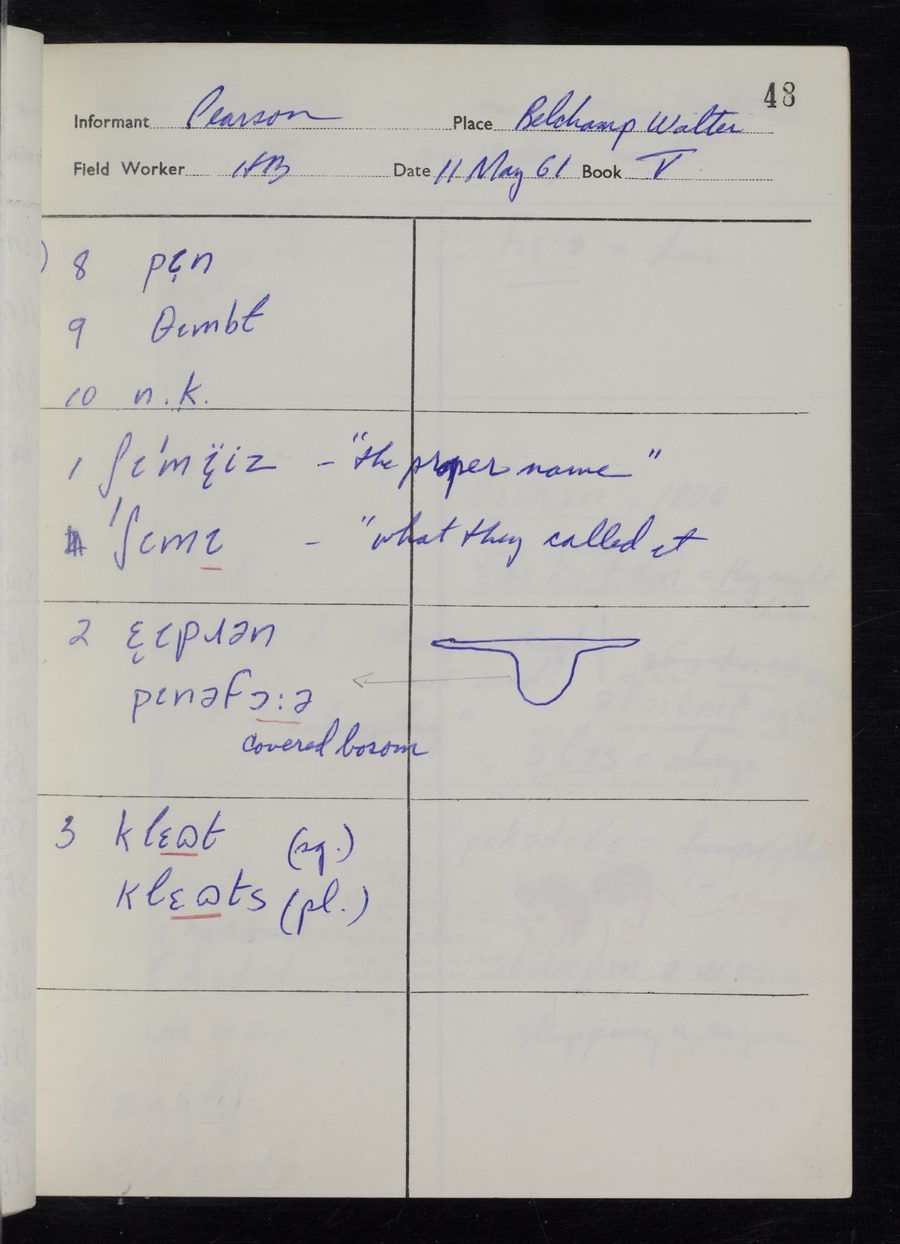 48
Informant Pearson Place Belchamp Walter
Field Worker HB Date 11 May 61 Book V
8 pɛ̨n
9 θɩmbt
10 n.k.
1 ʃɩˈmɩ̨̈iz – "the proper name"
ˈʃɩmɩ – "what they called it
2 ɛ̨ɩpɹən
pɩnəfɔ:ə
covered bosom
3 klɛɷt (sg.)
klɛɷts (pl.)